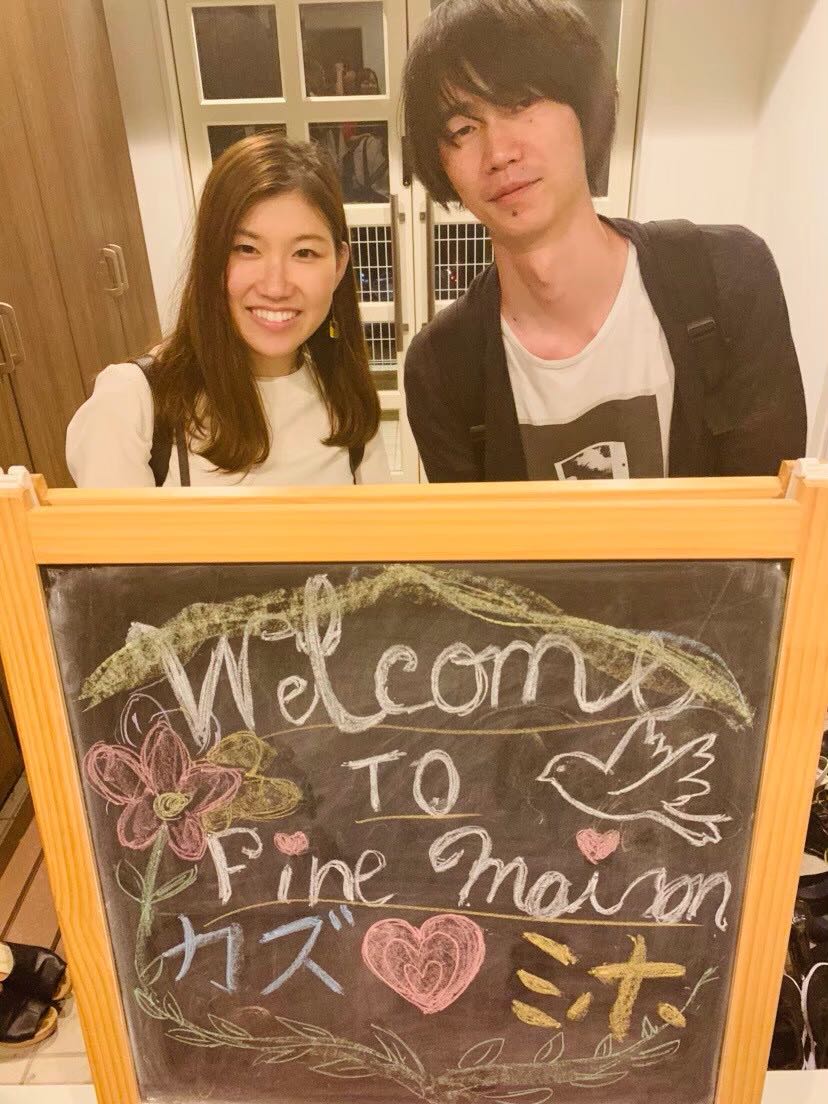 Welcome
TO
Fine Maison
カズ ミホ